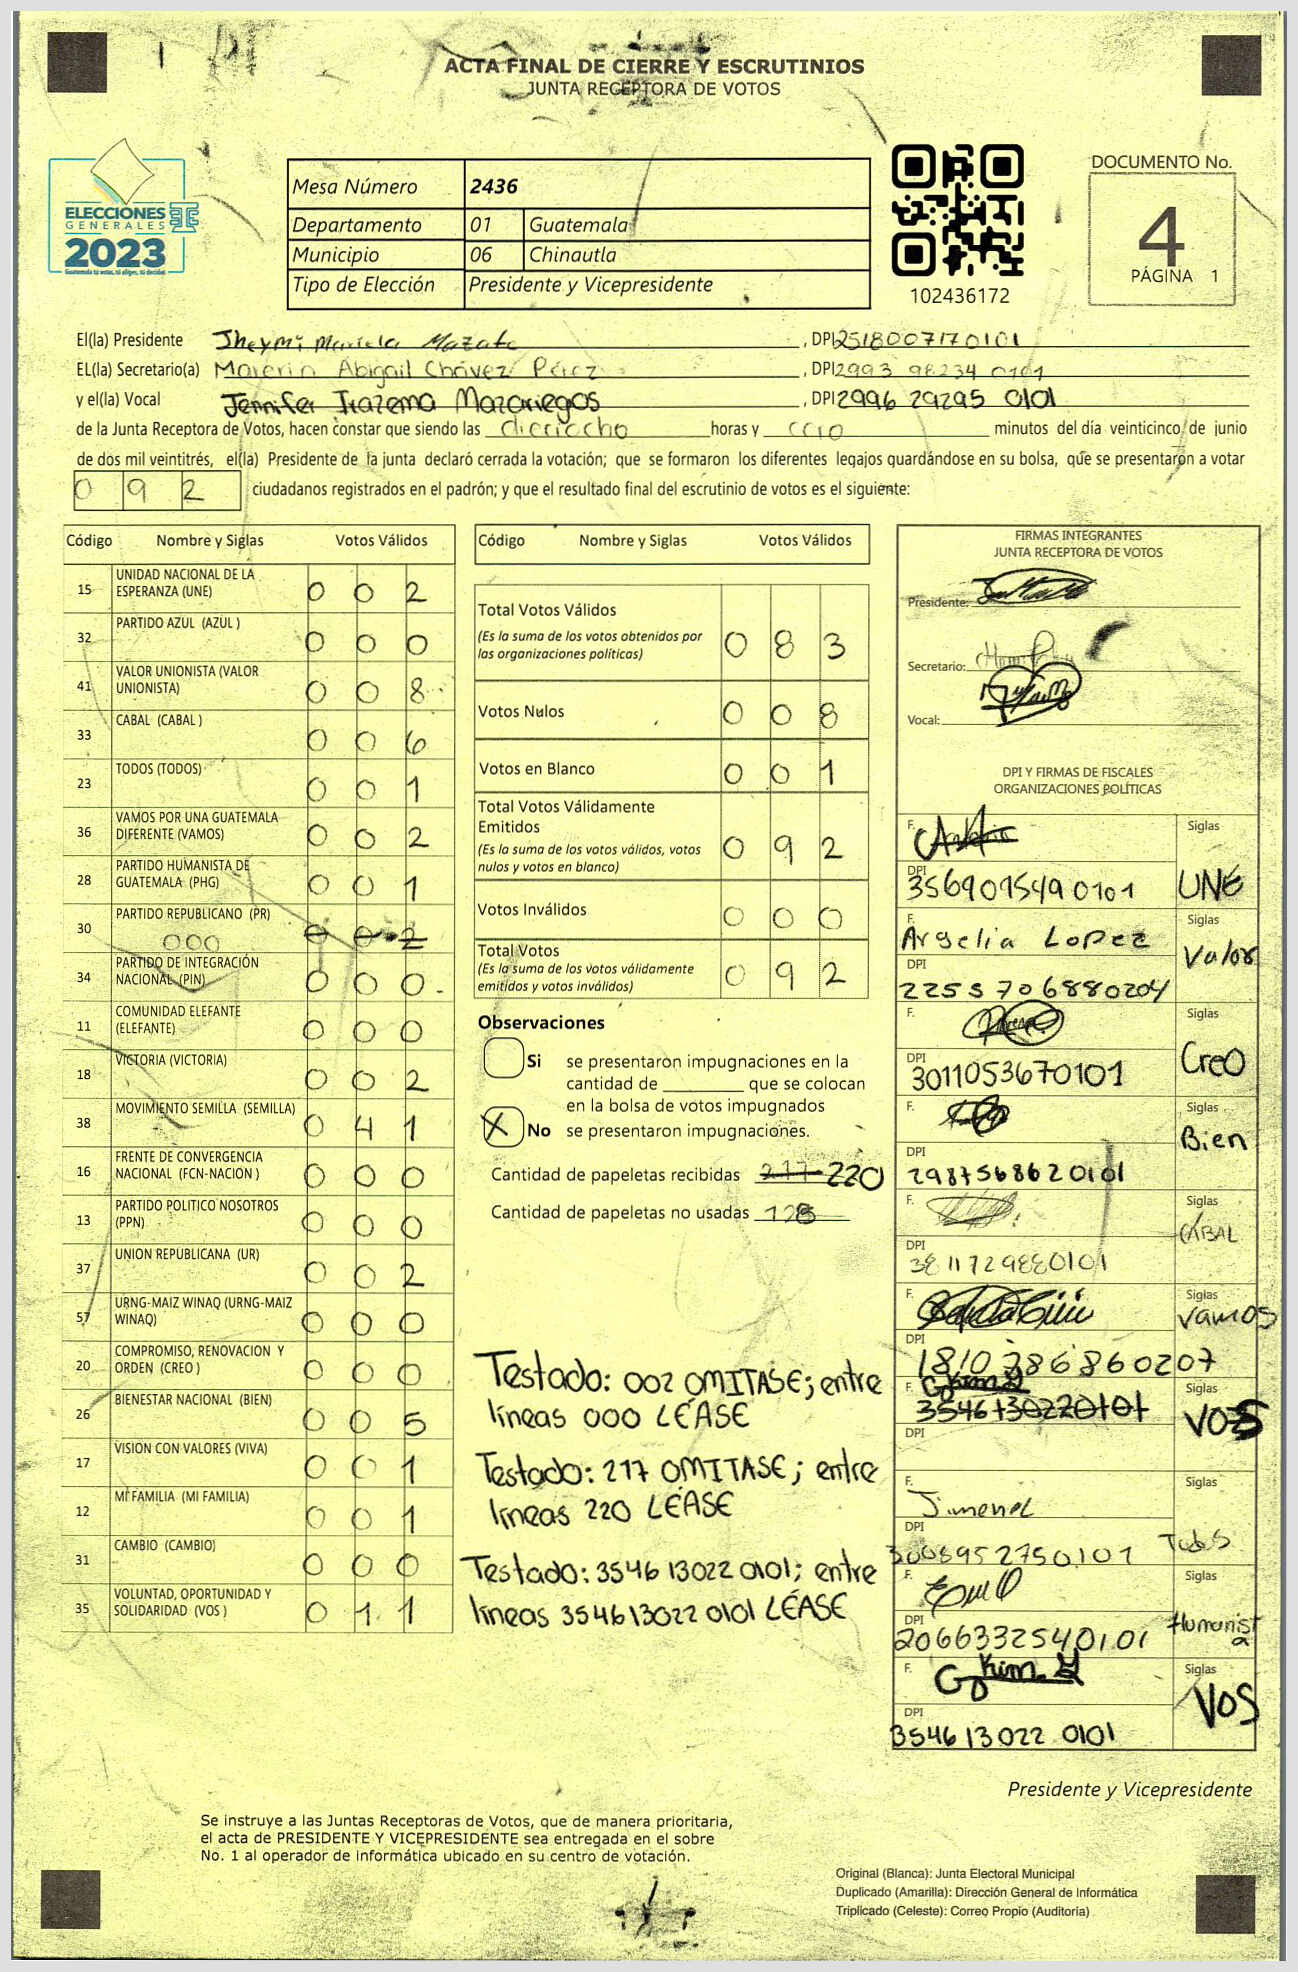 ACTA FINAL DE CIERRE Y ESCRUTINIOS
JUNTA RECEPTORA DE VOTOS
ELECCIONES
GENERALES
2023
Guatemala tú votas, tú eliges, tú decides
Mesa Número 2436
Departamento 01 Guatemala
Municipio 06 Chinautla
Tipo de Elección Presidente y Vicepresidente
102436172
DOCUMENTO No.
4
PÁGINA 1
El(la) Presidente Jheymi Mariela Mazate, DPI 2518007170101
EL(la) Secretario(a) Abigail Chávez Pérez, DPI 2993 98234 0101
y el(la) Vocal Jennifer Irazema Mazariegos, DPI 2996 29295 0101
de la Junta Receptora de Votos, hacen constar que siendo las dieciocho horas y cero minutos del día veinticinco de junio
de dos mil veintitrés, el(la) Presidente de la junta declaró cerrada la votación; que se formaron los diferentes legajos guardándose en su bolsa, que se presentaron a votar
0 9 2 ciudadanos registrados en el padrón; y que el resultado final del escrutinio de votos es el siguiente:
Código Nombre y Siglas Votos Válidos
15 UNIDAD NACIONAL DE LA ESPERANZA (UNE) 0 0 2
32 PARTIDO AZUL (AZUL ) 0 0 0
41 VALOR UNIONISTA (VALOR UNIONISTA) 0 0 8
33 CABAL (CABAL ) 0 0 6
23 TODOS (TODOS) 0 0 1
36 VAMOS POR UNA GUATEMALA DIFERENTE (VAMOS) 0 0 2
28 PARTIDO HUMANISTA DE GUATEMALA (PHG) 0 0 1
30 PARTIDO REPUBLICANO (PR) 000 0 0 2
34 PARTIDO DE INTEGRACIÓN NACIONAL (PIN) 0 0 0
11 COMUNIDAD ELEFANTE (ELEFANTE) 0 0 0
18 VICTORIA (VICTORIA) 0 0 2
38 MOVIMIENTO SEMILLA (SEMILLA) 0 4 1
16 FRENTE DE CONVERGENCIA NACIONAL (FCN-NACION ) 0 0 0
13 PARTIDO POLITICO NOSOTROS (PPN) 0 0 0
37 UNION REPUBLICANA (UR) 0 0 2
57 URNG-MAIZ WINAQ (URNG-MAIZ WINAQ) 0 0 0
20 COMPROMISO, RENOVACION Y ORDEN (CREO ) 0 0 0
26 BIENESTAR NACIONAL (BIEN) 0 0 5
17 VISION CON VALORES (VIVA) 0 0 1
12 MI FAMILIA (MI FAMILIA) 0 0 1
31 CAMBIO (CAMBIO) 0 0 0
35 VOLUNTAD, OPORTUNIDAD Y SOLIDARIDAD (VOS ) 0 1 1
Código Nombre y Siglas Votos Válidos
Total Votos Válidos 0 8 3
(Es la suma de los votos obtenidos por
las organizaciones políticas)
Votos Nulos 0 0 8
Votos en Blanco 0 0 1
Total Votos Válidamente
Emitidos 0 9 2
(Es la suma de los votos válidos, votos
nulos y votos en blanco)
Votos Inválidos 0 0 0
Total Votos 0 9 2
(Es la suma de los votos válidamente
emitidos y votos inválidos)
Observaciones
Si se presentaron impugnaciones en la
cantidad de ________ que se colocan
en la bolsa de votos impugnados
X No se presentaron impugnaciones.
Cantidad de papeletas recibidas 217 220
Cantidad de papeletas no usadas 128
Testado: 002 OMITASE; entre
líneas 000 LÉASE
Testado: 217 OMITASE; entre
líneas 220 LÉASE
Testado: 3546 13022 0101; entre
líneas 3546 13022 0101 LÉASE
FIRMAS INTEGRANTES
JUNTA RECEPTORA DE VOTOS
Presidente:
Secretario:
Vocal:
DPI Y FIRMAS DE FISCALES
ORGANIZACIONES POLÍTICAS
F. Siglas
DPI 3569095490101 UNE
F. Argelia Lopez Siglas
DPI Valor
2255 706880204
F. Siglas
DPI 3011053670101 Creo
F. Siglas
Bien
DPI 2987568620101
F. Siglas
CABAL
DPI 3811729880101
F. Siglas
Vamos
DPI 1810386860207
F. Kim Siglas
3546130220101 VOS
DPI
F. Jimenel Siglas
DPI 3008952750101 Todos
F. Siglas
DPI 2066332540101 Humanista
F. Kim Siglas
VOS
DPI 3546 13022 0101
Presidente y Vicepresidente
Se instruye a las Juntas Receptoras de Votos, que de manera prioritaria,
el acta de PRESIDENTE Y VICEPRESIDENTE sea entregada en el sobre
No. 1 al operador de informática ubicado en su centro de votación.
Original (Blanca): Junta Electoral Municipal
Duplicado (Amarilla): Dirección General de Informática
Triplicado (Celeste): Correo Propio (Auditoría)